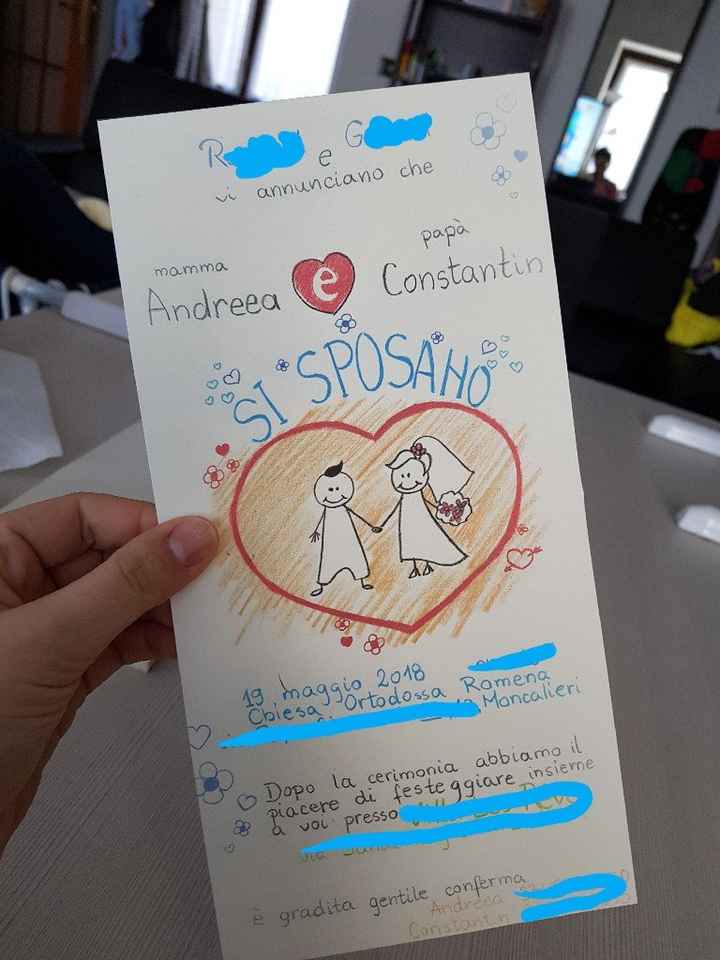 e
vi annunciano che
mamma
papà
Andreea e Constantin
SI SPOSANO
19 maggio 2018
Chiesa Ortodossa Romena
Moncalieri
Dopo la cerimonia abbiamo il
piacere di festeggiare insieme
a voi presso
è gradita gentile conferma
Andreea
Constantin